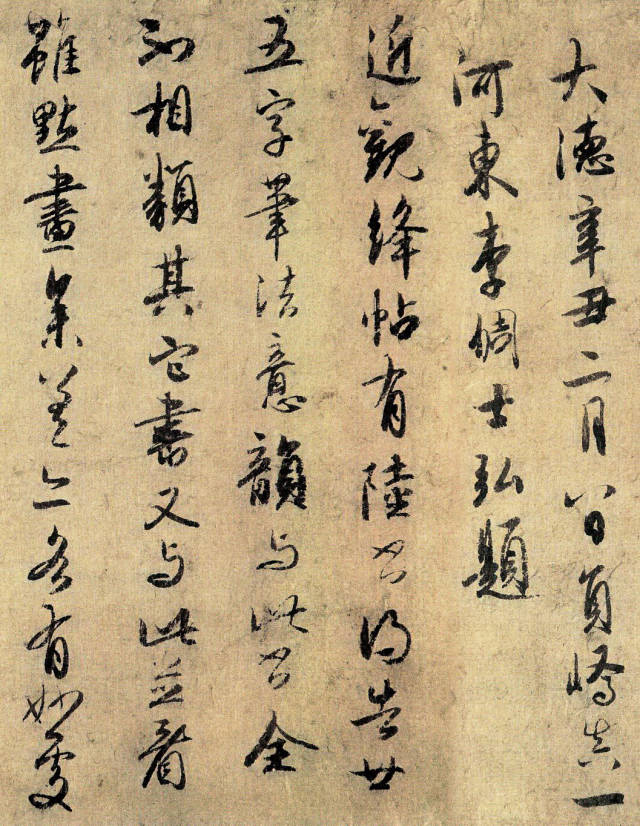 大德辛丑二月八日員嶠真一
河東李倜士弘題
近觀絳帖有陸書得告廿
五字筆法意韻与此書全
不相類其它書又与此並看
雖點畫參差亦各有妙處